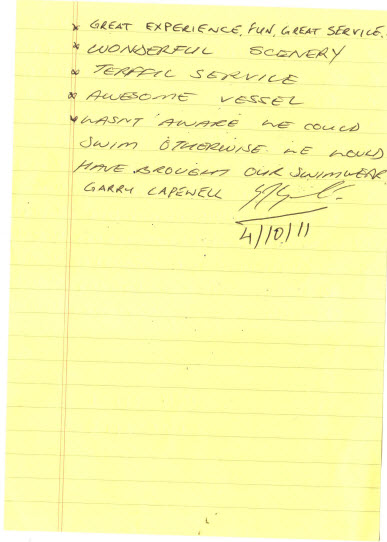 * GREAT EXPERIENCE, FUN, GREAT SERVICE.
* WONDERFUL SCENERY
* TERFFIC SERVICE
* AWESOME VESSEL
* WASNT AWARE WE COULD
SWIM OTHERWISE WE WOULD
HAVE BROUGHT OUR SWIMWEAR
GARRY LAPEWELL
4/10/11